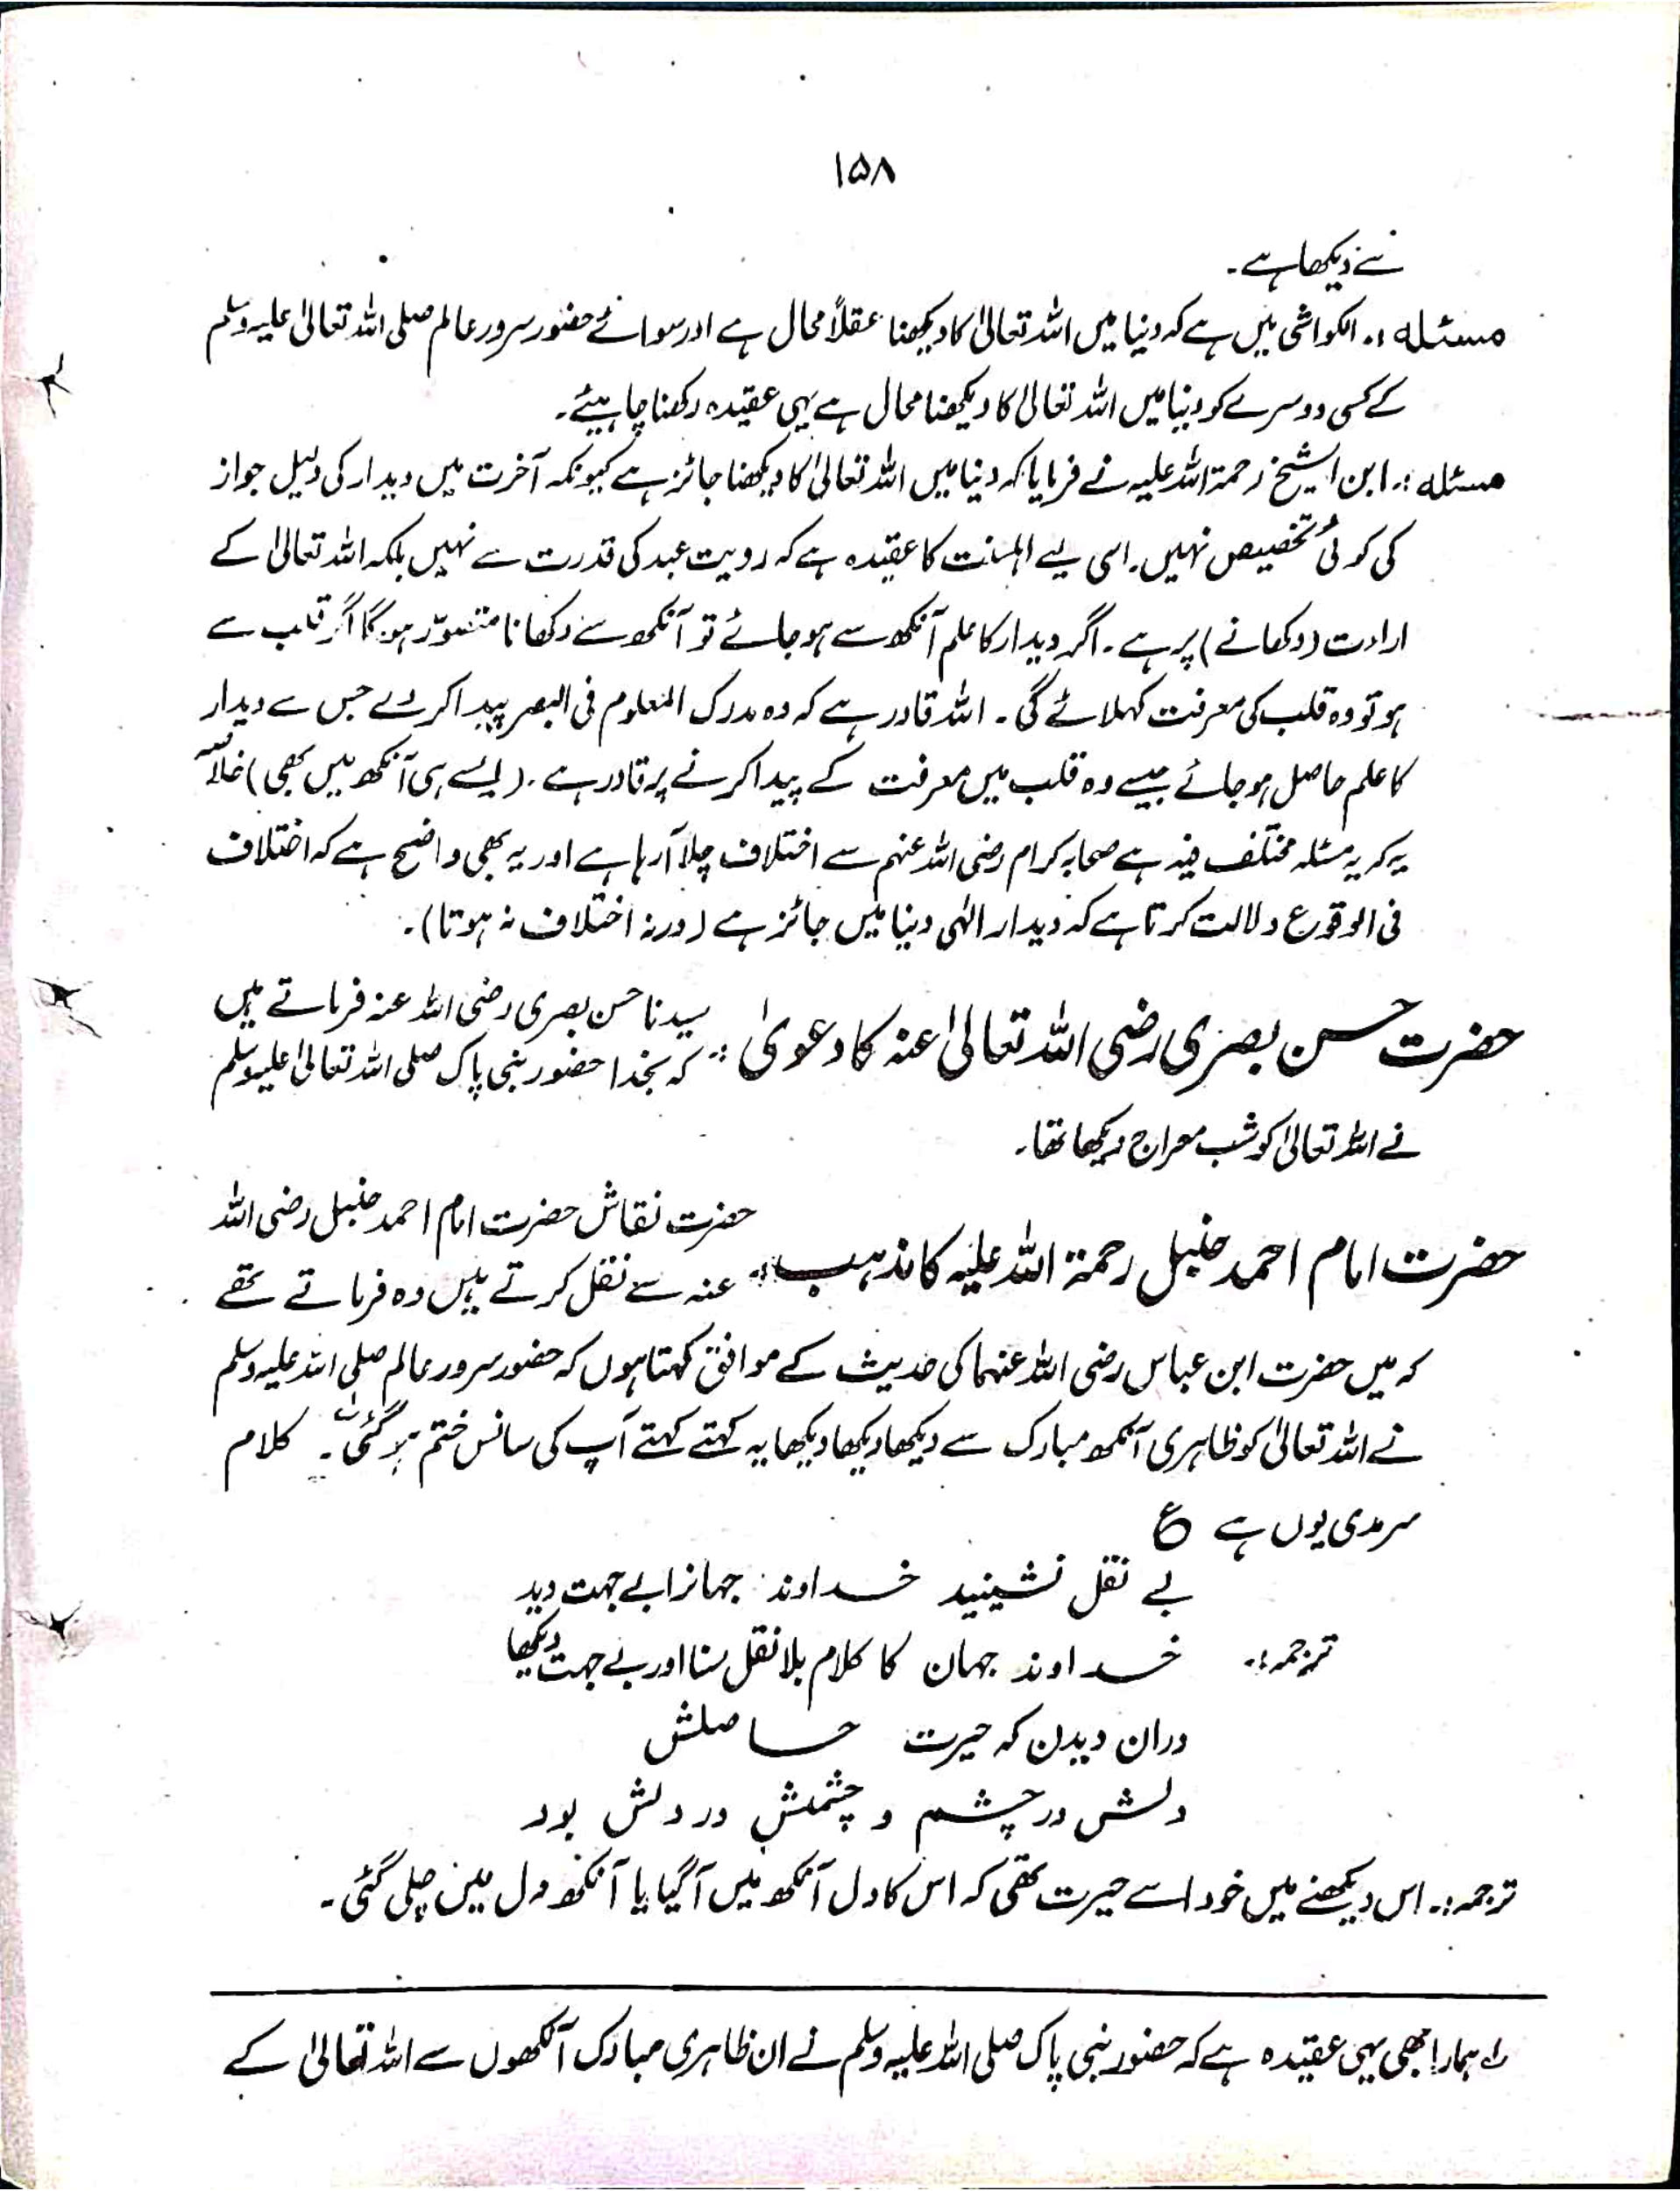 ۱۵۸
نے دیکھا ہے۔
مسئلہ :۔ الکواشی میں ہے کہ دنیا میں اللہ تعالیٰ کا دیکھنا عقلاً محال ہے اور سوائے حضور سرور عالم صلی اللہ تعالیٰ علیہ وسلم
کے کسی دوسرے کو دنیا میں اللہ تعالیٰ کا دیکھنا محال ہے یہی عقیدہ رکھنا چاہیئے۔
مسئلہ :۔ ابن الشیخ رحمۃ اللہ علیہ نے فرمایا کہ دنیا میں اللہ تعالیٰ کا دیکھنا جائز ہے کیونکہ آخرت میں دیدار کی دلیل جواز
کی کوئی تخصیص نہیں۔ اسی لیے اہلسنت کا عقیدہ ہے کہ رویت عبد کی قدرت سے نہیں بلکہ اللہ تعالیٰ کے
ارادت (دکھانے) پر ہے۔ اگر دیدار کا علم آنکھ سے ہو جائے تو آنکھ سے دکھانا متصوّر ہوگا اگر قلب سے
ہو تو وہ قلب کی معرفت کہلائے گی۔ اللہ قادر ہے کہ وہ مدرک المعلوم فی البصر پیدا کر دے جس سے دیدار
کا علم حاصل ہو جائے جیسے وہ قلب میں معرفت کے پیدا کرنے پر قادر ہے۔ (ایسے ہی آنکھ میں بھی) خلاصہ
یہ کہ یہ مسئلہ مختلف فیہ ہے صحابہ کرام رضی اللہ عنہم سے اختلاف چلا آرہا ہے اور یہ بھی واضح ہے کہ اختلاف
فی الوقوع دلالت کرتا ہے کہ دیدار الٰہی دنیا میں جائز ہے (ورنہ اختلاف نہ ہوتا)۔
حضرت حسن بصری رضی اللہ تعالیٰ عنہ کا دعویٰ :۔ سیدنا حسن بصری رضی اللہ عنہ فرماتے ہیں
کہ بخدا حضور نبی پاک صلی اللہ تعالیٰ علیہ وسلم
نے اللہ تعالیٰ کو شب معراج دیکھا تھا۔
حضرت امام احمد حنبل رحمۃ اللہ علیہ کا مذہب :۔ حضرت نقاش حضرت امام احمد حنبل رضی اللہ
عنہ سے نقل کرتے ہیں وہ فرماتے تھے
کہ میں حضرت ابن عباس رضی اللہ عنہما کی حدیث کے موافق کہتا ہوں کہ حضور سرور عالم صلی اللہ علیہ وسلم
نے اللہ تعالیٰ کو ظاہری آنکھ مبارک سے دیکھا دیکھا دیکھا یہ کہتے کہتے آپ کی سانس ختم ہو گئی۔ کلام
سرمدی یوں ہے ع
بے نقل نشینید خداوند جہانرا بے جہت دید
ترجمہ :۔ خداوند جہان کا کلام بلا نقل سنا اور بے جہت دیکھا
دران دیدن کہ حیرت حاصلش
دلش در چشم و چشمش در دلش بود
ترجمہ :۔ اس دیکھنے میں خود اسے حیرت تھی کہ اس کا دل آنکھ میں آگیا یا آنکھ دل میں چلی گئی۔
ہمارا بھی یہی عقیدہ ہے کہ حضور نبی پاک صلی اللہ علیہ وسلم نے ان ظاہری مبارک آنکھوں سے اللہ تعالیٰ کے